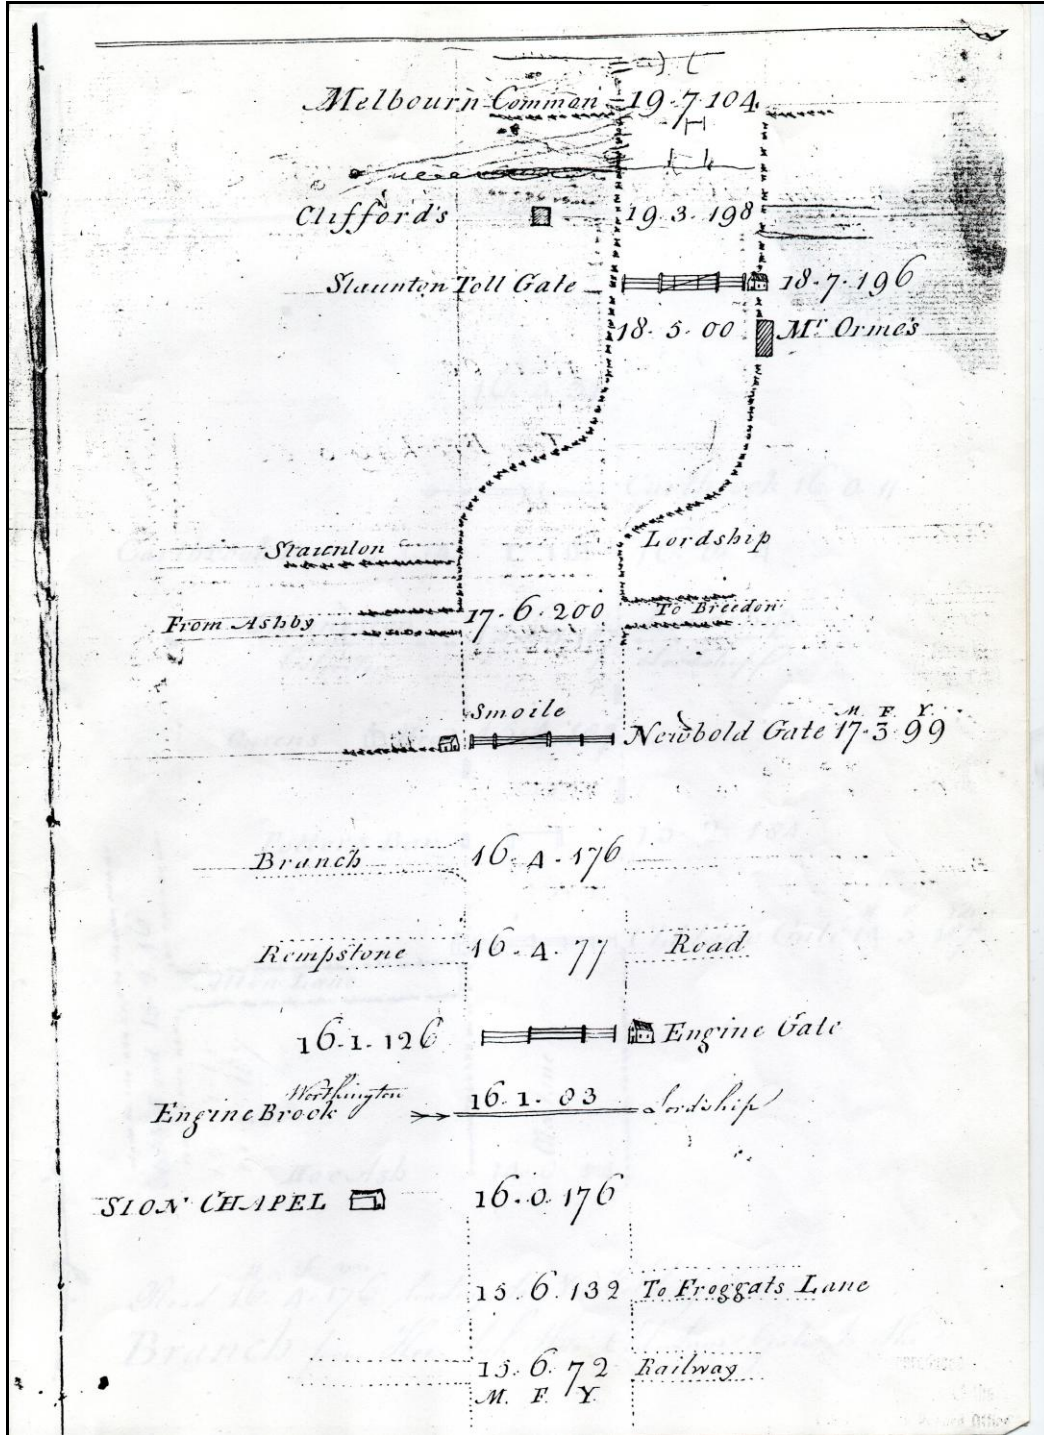 Melbourn Common 19.7.104
Clifford's 19.3.198
Staunton Toll Gate 18.7.196
18.5.00 Mr Orme's
Staunton Lordship
From Ashby 17.6.200 To Breedon
Smoile
M. F. Y.
Newbold Gate 17.3.99
Branch 16.4.176
Rempstone 16.4.77 Road
16.1.126 Engine Gate
Worthington
Engine Brook 16.1.03 Lordship
SION CHAPEL 16.0.176
15.6.132 To Froggats Lane
15.6.72 Railway
M. F. Y.